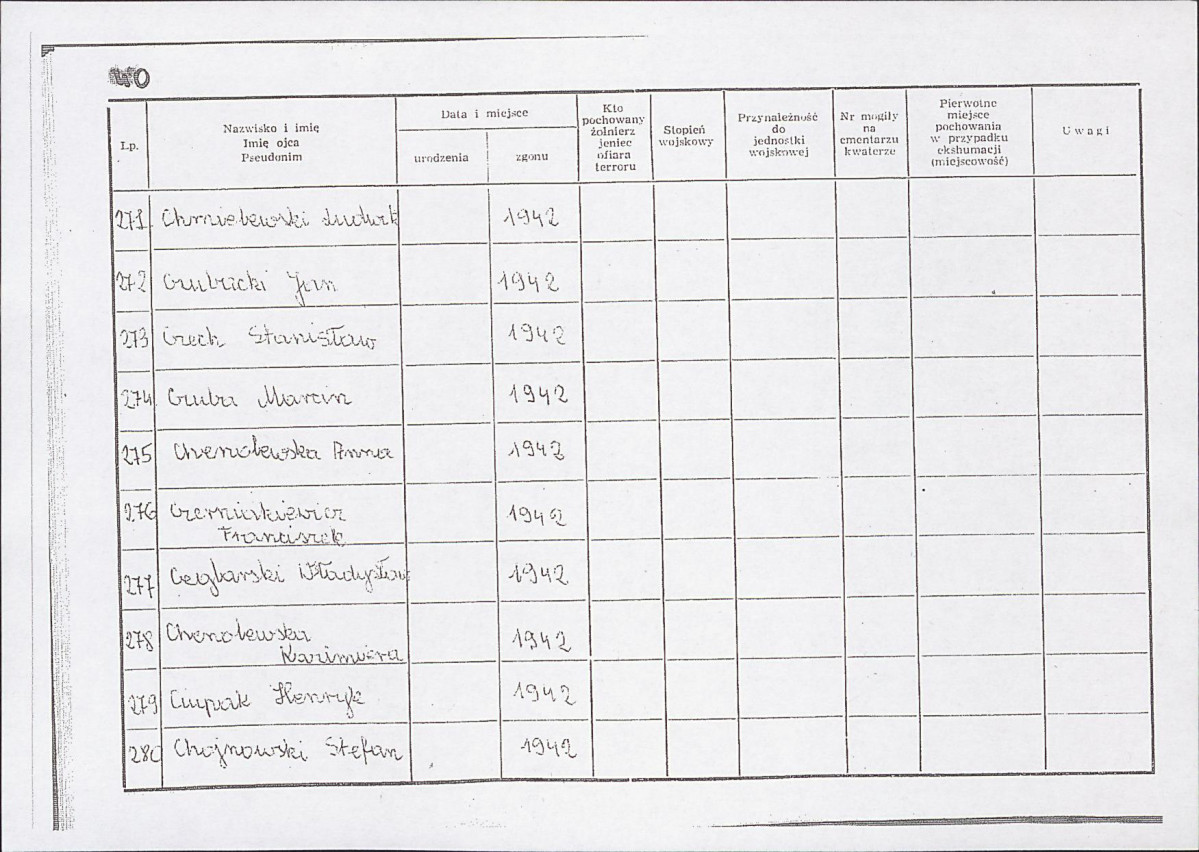 40
Lp.
Nazwisko i imię
Imię ojca
Pseudonim
Data i miejsce
urodzenia
zgonu
Kto
pochowany
żołnierz
jeniec
ofiara
terroru
Stopień
wojskowy
Przynależność
do
jednostki
wojskowej
Nr mogiły
na
cmentarzu
kwaterze
Pierwotne
miejsce
pochowania
w przypadku
ekshumacji
(miejscowość)
Uwagi
271. Chmielewski Ludwik 1942
272 Jan 1942
273 Czech Stanisław 1942
274. Czuba Marcin 1942
275 Anna 1942
276 Czerniukiewicz 1942
Franciszek
277 Ceglarski Władysław 1942
278 1942
Kazimiera
279 Ciupak Henryk 1942
280 Chojnowski Stefan 1942